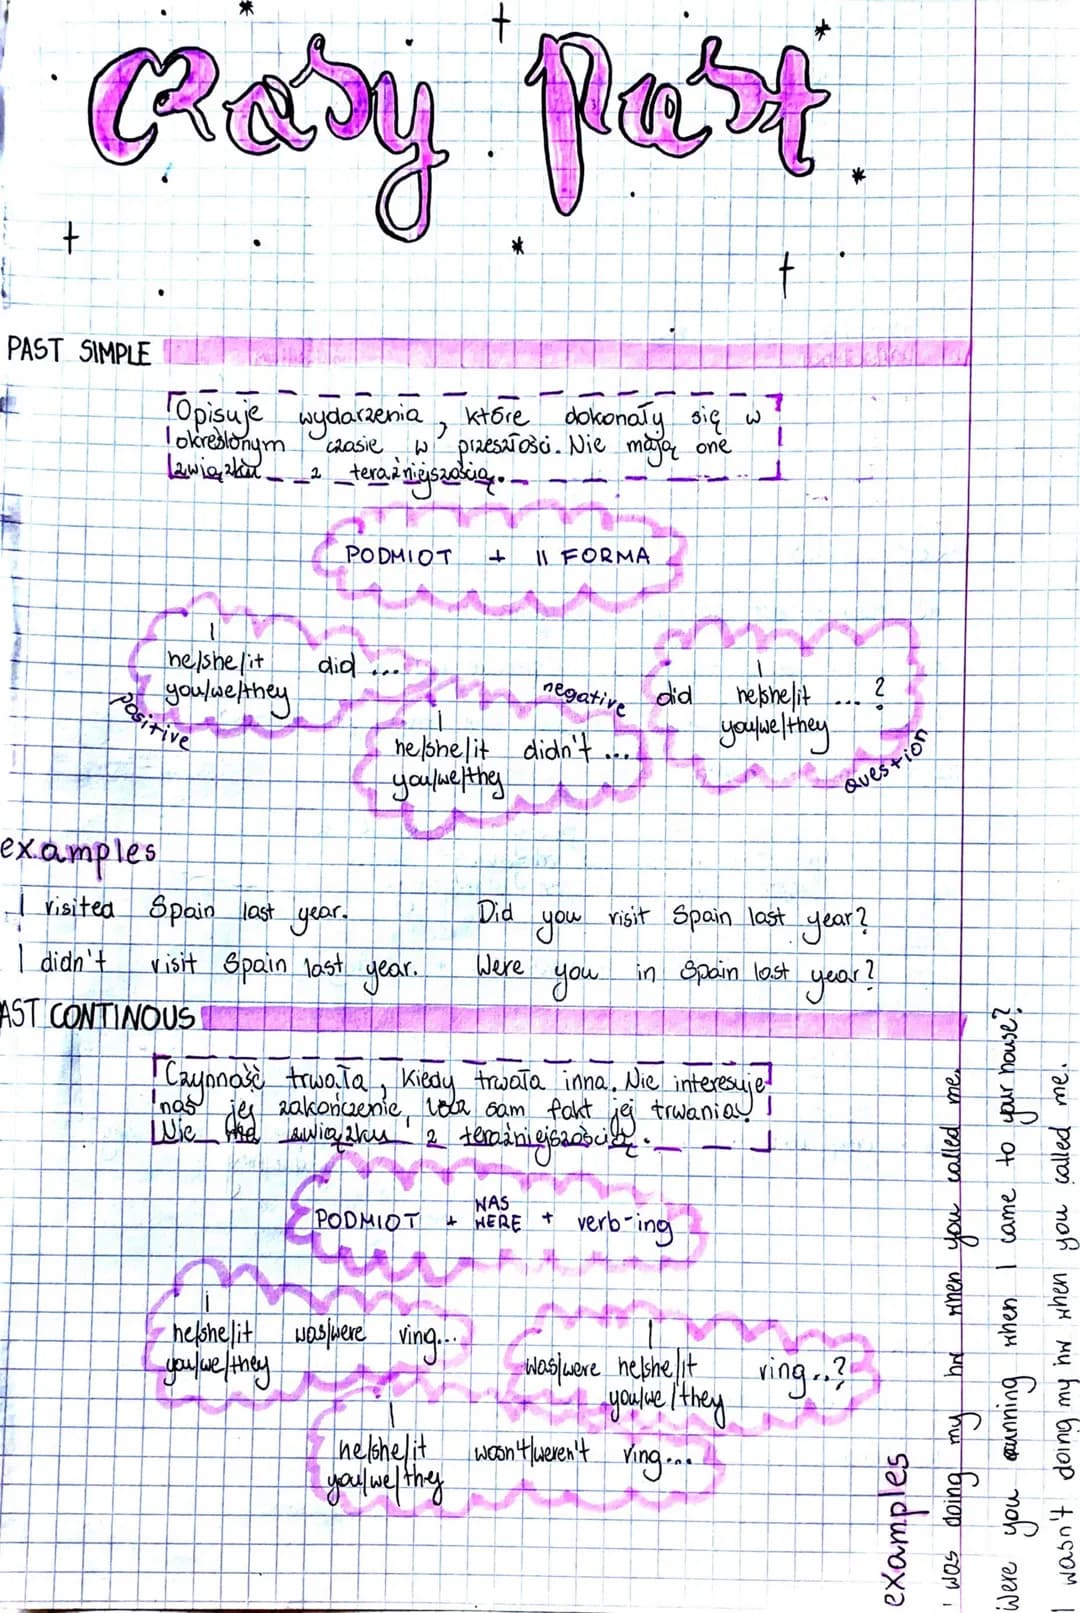 czasy past
PAST SIMPLE
Opisuje wydarzenia, które dokonały się w
określonym czasie w przeszłości. Nie mają one
związku z teraźniejszością.
PODMIOT + II FORMA
I
he/she/it did ...
you/we/they
positive
negative
I
he/she/it didn't ...
you/we/they
I
did he/she/it ... ?
you/we/they
question
examples
I visited Spain last year.
Did you visit Spain last year?
I didn't visit Spain last year.
Were you in Spain last year?
AST CONTINOUS
Czynność trwała, kiedy trwała inna. Nie interesuje
nas jej zakończenie, lecz sam fakt jej trwania.
Nie ma związku z teraźniejszością.
PODMIOT + WAS
WERE + verb-ing
I
he/she/it was/were ving...
you/we/they
I
was/were he/she/it ving..?
you/we/they
I
he/she/it wasn't/weren't ving...
you/we/they
examples
I was doing my hw when you called me.
Were you running when I came to your house?
I wasn't doing my hw when you called me.